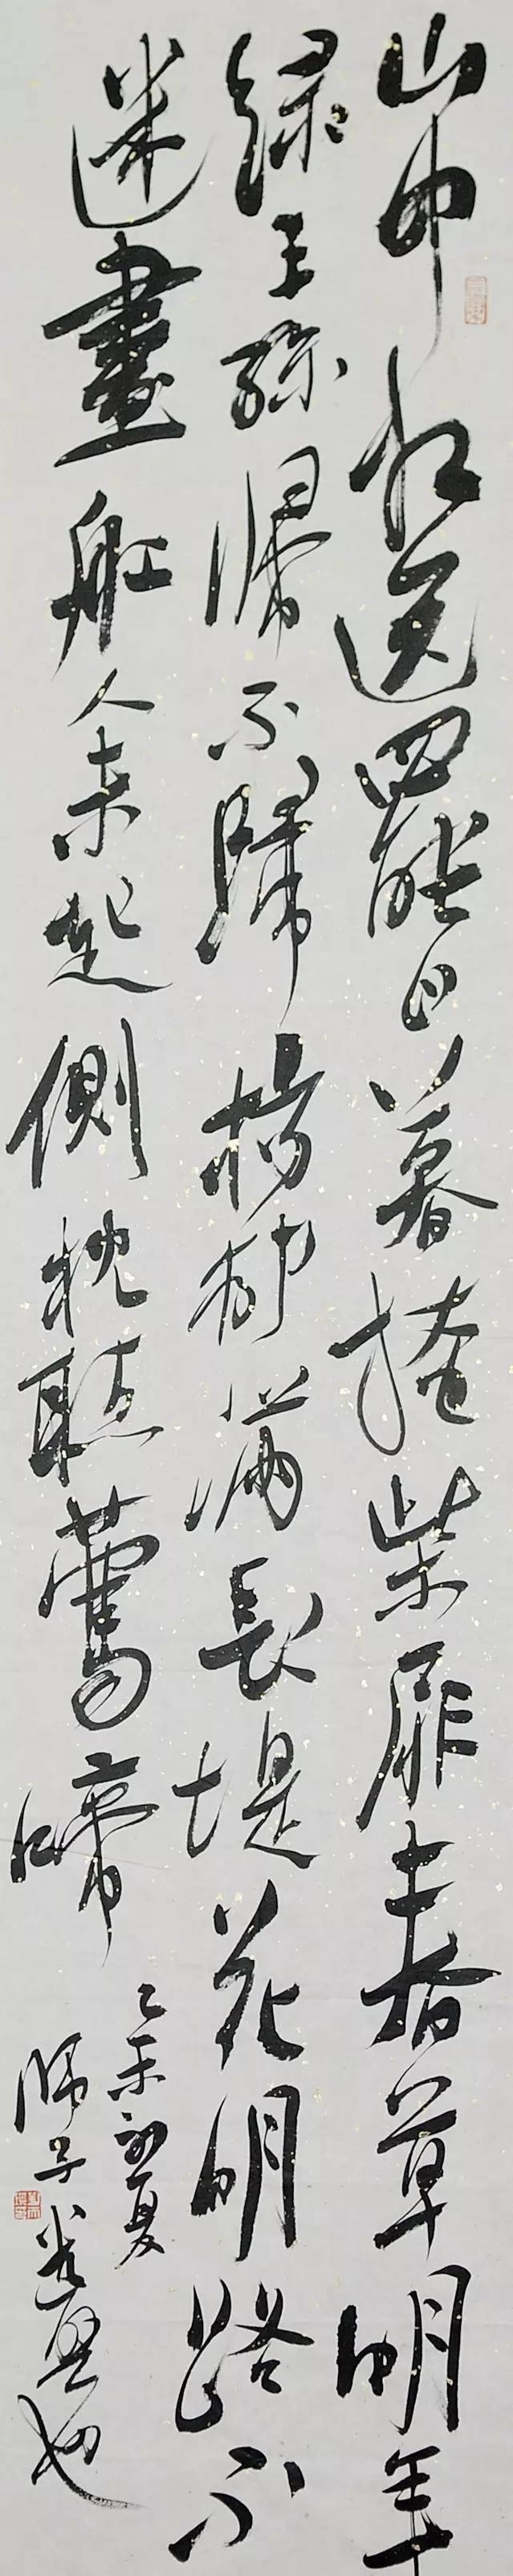 山中相送罷日暮掩柴扉春草明年
綠王孫歸不歸楊柳滿長堤花明路不
迷畫船人未起側枕聽鶯啼
乙未初夏
歸子